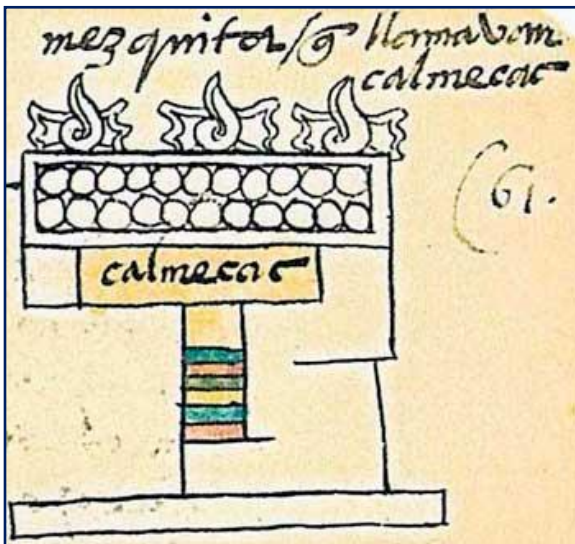 mezquita / q llamavan
calmecac
(61.
calmecac